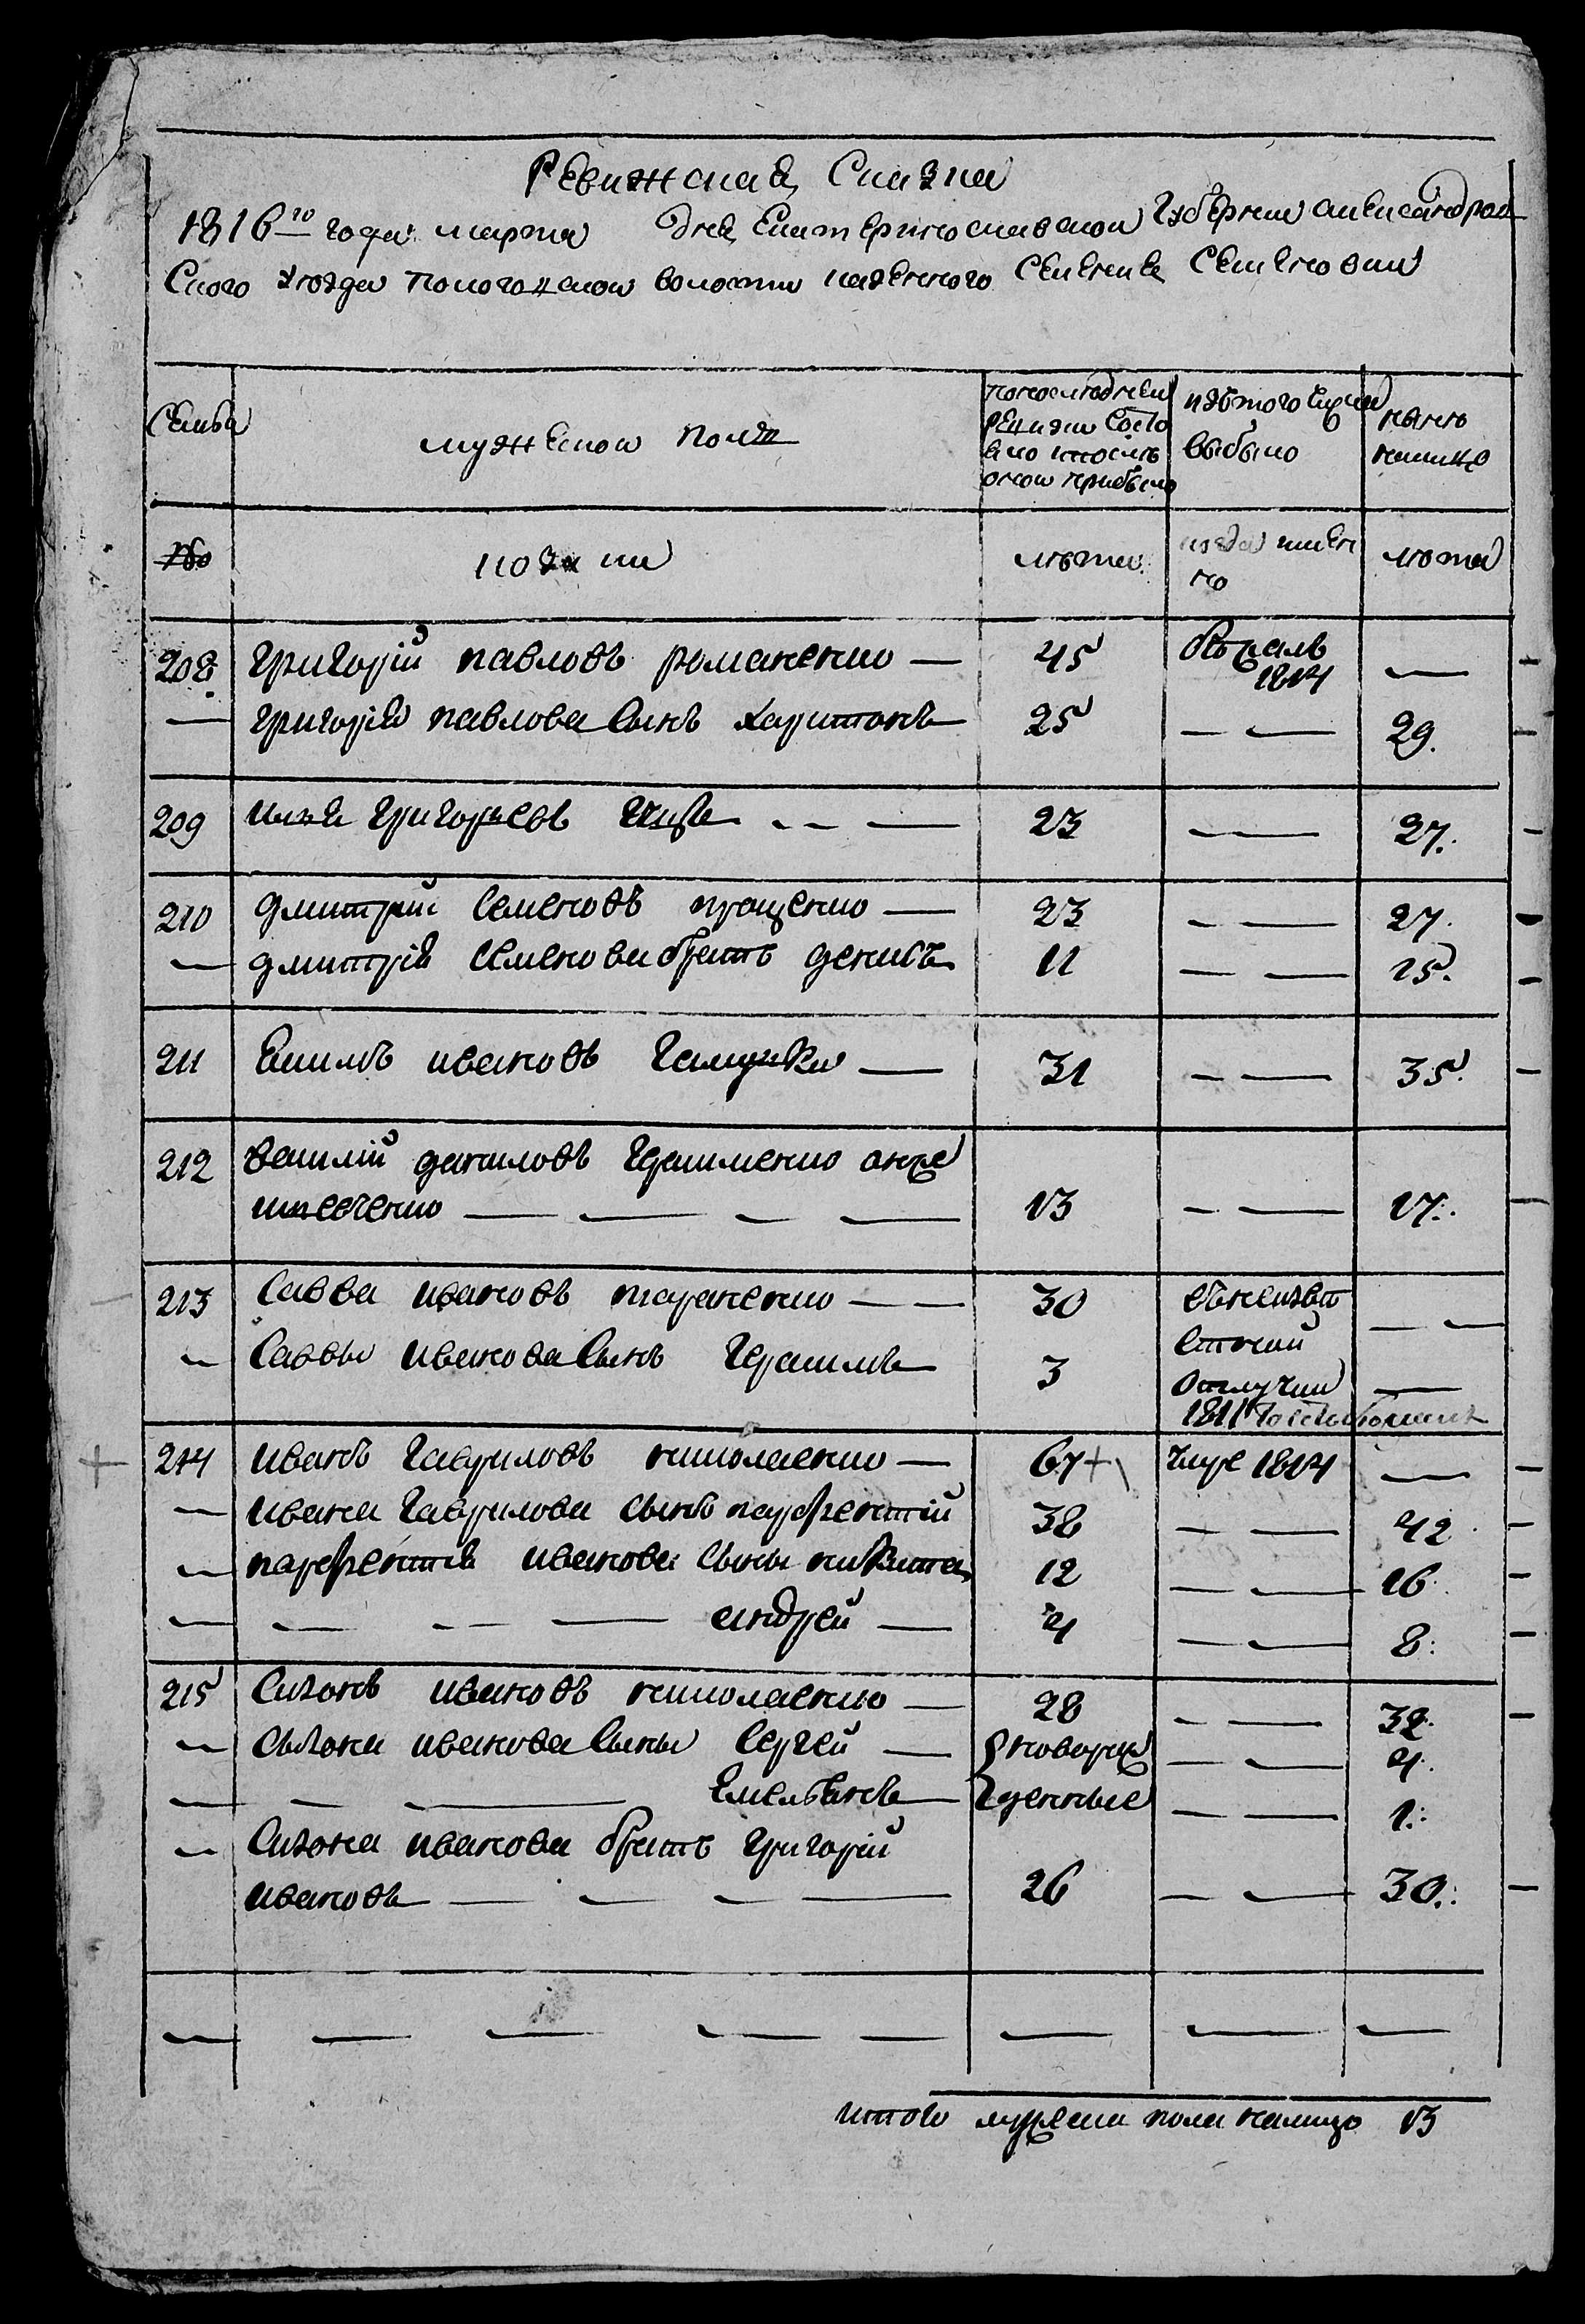 Ревижская Сказка
1816го года марта дня Екатеринославской Губернии александров
Ского уезда Пологоцкой волости казенного Селения Семеновки
Семьи
мужеской Полъ
попоследней
ревизии Состо
яло ипослѣ
оной прибыло
изътого числа
выбыло
ныне
налицо
лѣта
когда имен
но
лѣта
208. григорій павловъ романенко — 45 умре 1814 —
— григорія павлова Сынъ харитонъ 25 — — 29.
209 илья григорьевъ — — 23 — — 27.
210 дмитрий Семеновъ прощенко — 23 — — 27.
— дмитрія Семенова братъ денисъ 11 — — 15.
211 Екимъ ивановъ — 31 — — 35.
212 василій даниловъ герасименко онже
— — — — 13 — — 17.
213 Савва ивановъ тараненко — — 30 внеизвѣ — —
— Саввы иванова Сынъ Герасимъ 3 стной —
отлучки
1811
214 иванъ Гавриловъ николаенко — 67 + умре 1814 —
— ивана Гаврилова сынъ парфентій 38 — — 42
— парфентія иванова сыны никита 12 — — 16.
— — — — андрей — 4 — — 8.
215 Сизонъ ивановъ николаенко — 28 — — 32.
— Сызона иванова Сыны Сергей — новорож — — 4.
— — — Емельянъ денные — — 1.
— Сизона иванова братъ григорій
ивановъ — — — — 26 — — 30.
— — — — — — — —
итого мужеска пола налицо 13